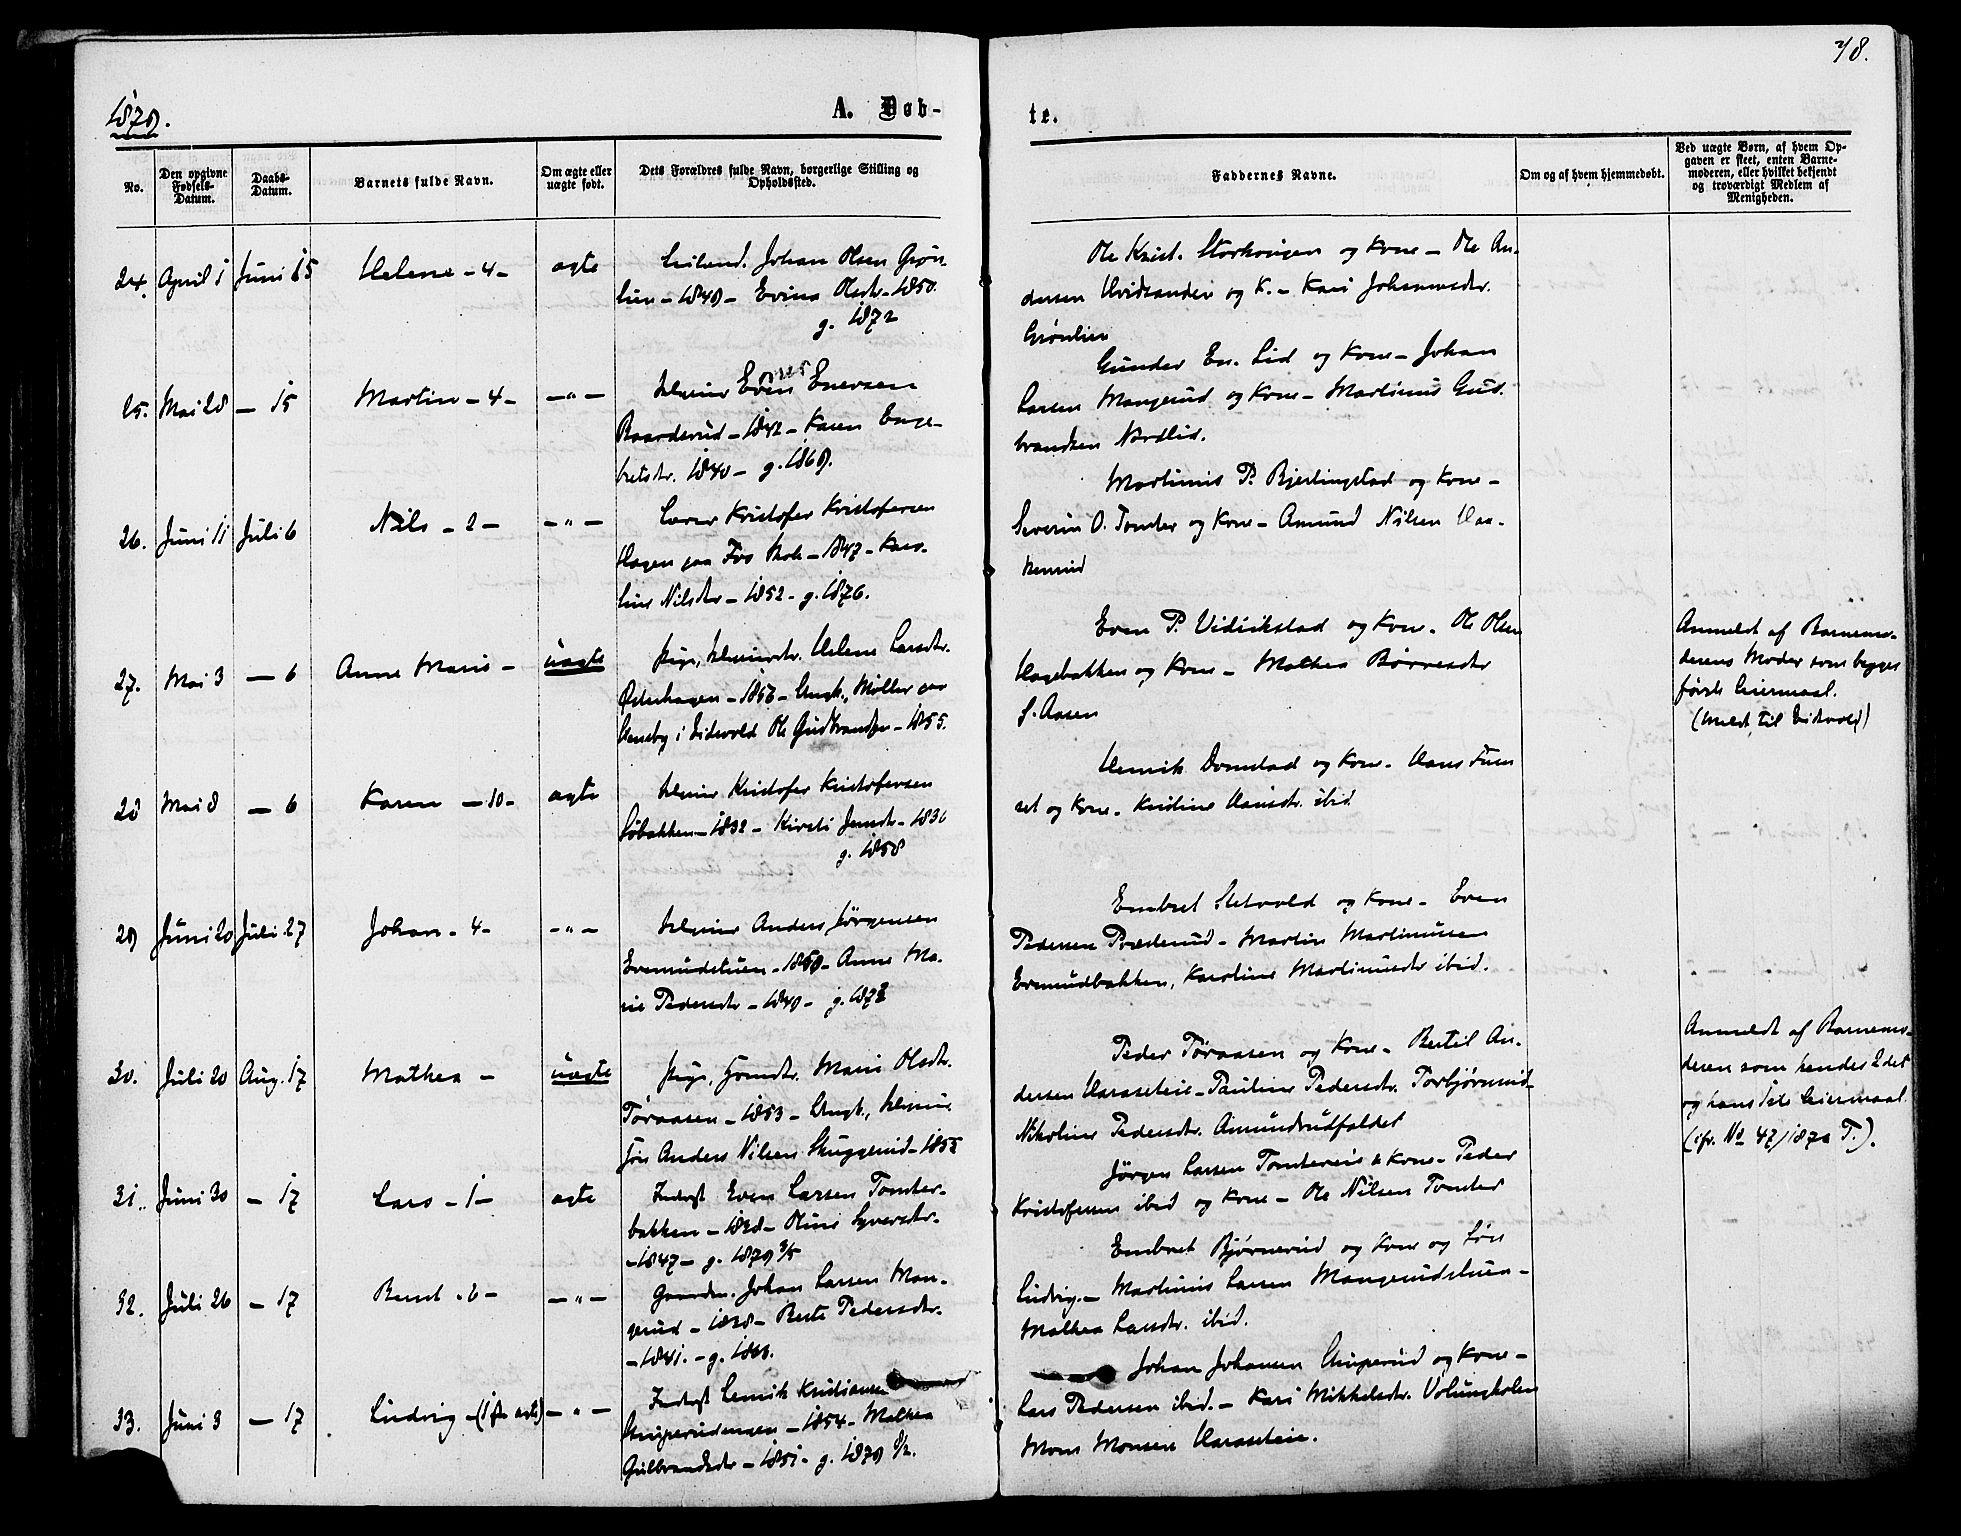 48.
1879.
A. Døb-
te.
No.
Den opgivne Fødsels-Datum.
Daabs-Datum.
Barnets fulde Navn.
Om ægte eller uægte født.
Dets Forældres fulde Navn, borgerlige Stilling og Opholdssted.
Faddernes Navne.
Om og af hvem hjemmedøbt.
Ved uægte Børn, af hvem Opgaven er skeet, enten Barnemoderen, eller hvilket bekjendt og troværdigt Medlem af Menigheden.
24. April 1 Juni 15 Helene - 4 - ægte
Johan Olsen Grøn-
lien - 1849 - Evina Olsdtr - 1850.
g. 1872
Ole Krist. Storhougen og Kone - Ole An-
dersen Hvidsanden og K. - Kari Johannesdtr.
Grønlien
25. Mai 28 - 15 Martin - 4 - - " -
Even Enersen
Baarderud - 1842 - Karen Enge-
bretsdtr. 1840 - g. 1869.
Gunder En. Lid og Kone - Johan
Larsen Mangerud og Kone - Martinus Gud-
brandsen Nordlid.
26. Juni 11 Juli 6 Nils - 2 - - " -
Lærer Kristofer Kristofersen
Hagen paa Fro Skole - 1847 - Karo-
line Nilsdtr - 1852 - g. 1876.
Martinus P. Bjertingstad og Kone -
Severin O. Tomter og Kone - Amund Nilsen Haa-
kenrud
27. Mai 3 - 6 Anne Marie - uægte
Pige, Helene Larsdtr.
Østerhagen - 1856 - Ungk., Møller paa
i Eidsvold Ole Gudbrandsen - 1855.
Even P. Vidikstad og Kone - Ole Olsen
Hagebakken og Kone - Mathea Børresdtr
S. Aasen
Anmeldt af Barnemo-
derens Moder som begges
første Leiermaal.
(Meldt til Eidsvold)
28 Mai 8 - 6 Karen - 10 - ægte
Kristofer Kristofersen
Søbakken - 1832 - Kirsti Jensdtr - 1836
g. 1858
Henrik Domstad og Kone - Hans Fure-
set og Kone - Kristine Hansdtr. ibid
29 Juni 20 Juli 27 Johan - 4 - - " -
Anders Jørgensen
Evenrudstuen - 1850 - Anne Ma-
rie Pedersdtr - 1849 - g. 1873
Embret Sletvold og Kone - Even
Pedersen Præsterud - Martin Martinussen
Evenrudbakken, Karoline Martinusdtr ibid.
30. Juli 20 Aug. 17 Mathea - uægte
Pige, Marie Olsdtr.
Tøraasen - 1853 - Ungk.,
Søn Anders Nilsen Skuggerud - 1855
Peder Tøraasen og Kone - Bertil An-
dersen Haraseteie - Pauline Pedersdtr. Torbjørnrud -
Nikoline Pedersdtr. Amundrudfaldet
Anmeldt af Barnemo-
deren som hendes 2det
og hans 1ste Leiermaal.
(cfr. No 47/1870 T.).
31. Juni 30 - 17 Lars - 1 - ægte
Inderst Even Larsen Tomter-
bakken - 1828 - Oline Syversdtr.
- 1847 - g. 1879 3/5
Jørgen Larsen Tomtereie & Kone - Peder
Kristofersen ibid og Kone - Ole Nilsen Tomter
32. Juli 26 - 17 Bernt - 6 - - " -
Gaardm. Johan Larsen Man-
gerud - 1838 - Berte Pedersdtr.
- 1841. - g. 1866.
Embret Bjørnerud og Kone og Søn
Ludvig. - Martinus Larsen Mangerudstuen -
Mathea Larsdtr. ibid.
33. Juni 3 - 17 Ludvig - (1ste ægte) - " -
Inderst Henrik Kristiansen
- 1854 - Mathea
Gulbrandsdtr - 1851 - g. 1879
Johan Johansen og Kone -
Lars Pedersen ibid. - Kari Mikkelsdtr. Volungholen
Mons Monsen Haraseteie.